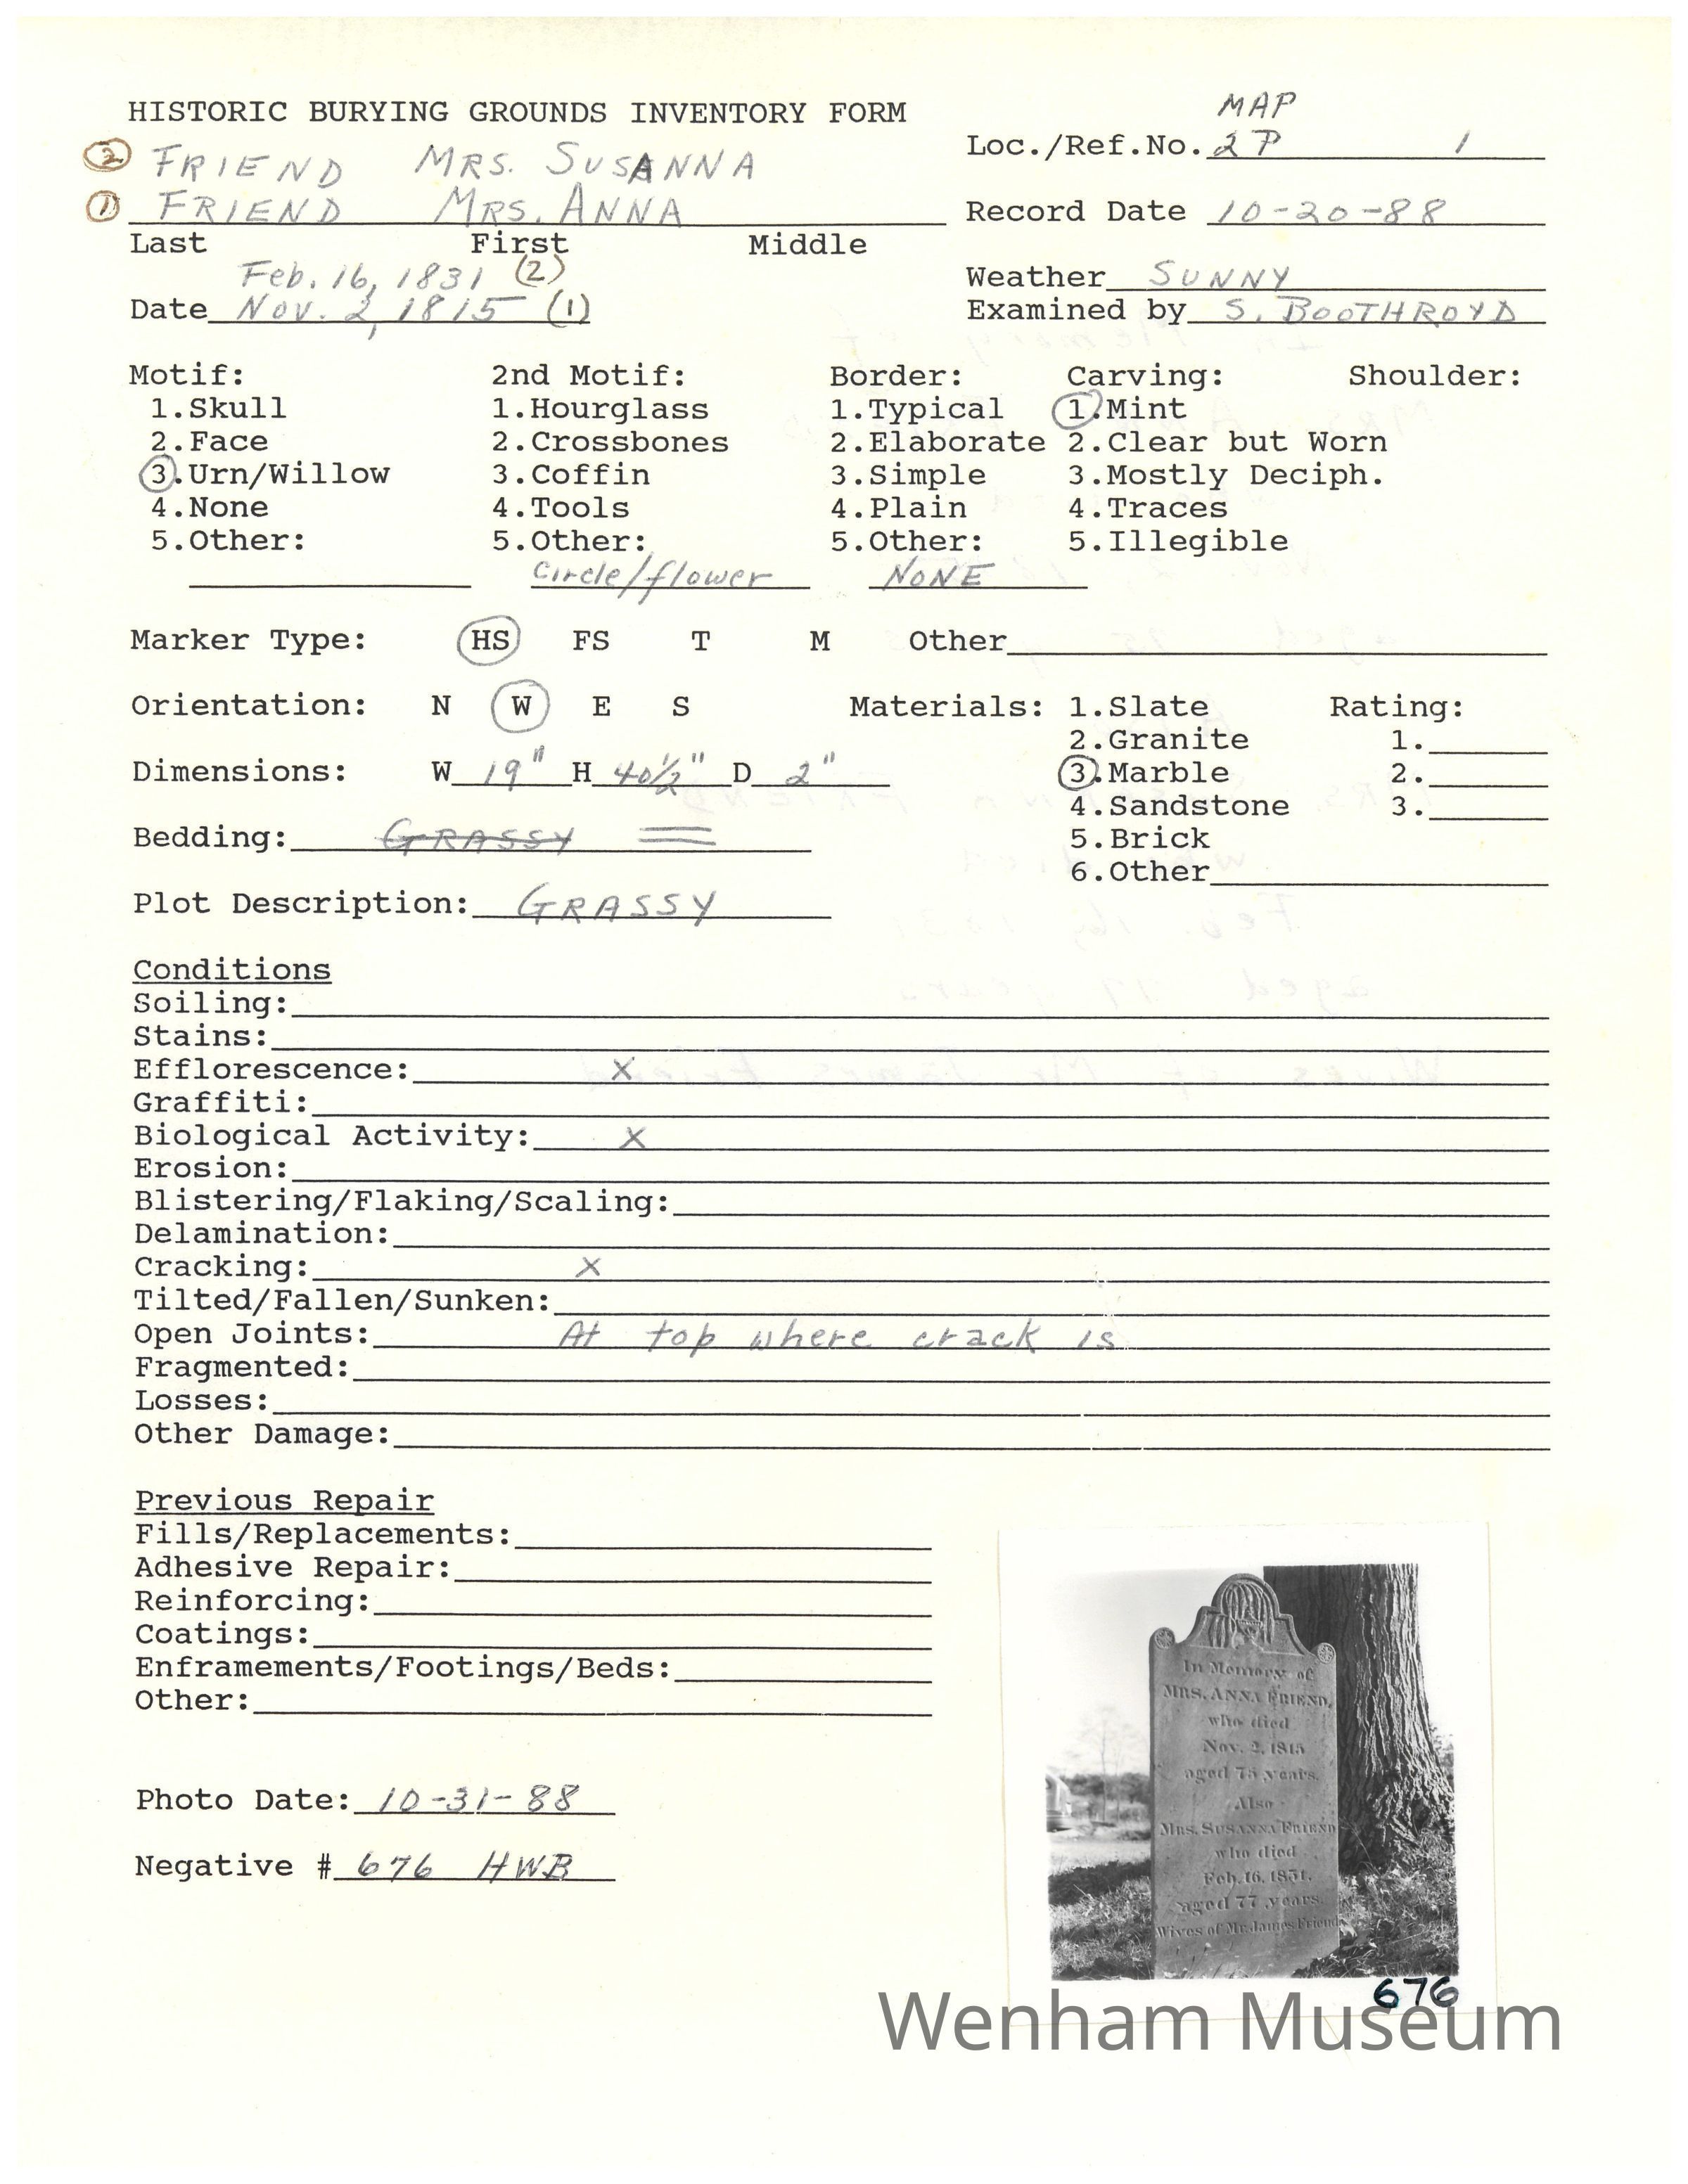 HISTORIC BURYING GROUNDS INVENTORY FORM
MAP
Loc./Ref.No. 2P 1
② FRIEND MRS. SUSANNA
① FRIEND MRS. ANNA
Record Date 10-20-88
Last First Middle
Feb. 16, 1831 (2)
Weather SUNNY
Date Nov. 2, 1815 (1)
Examined by S. BOOTHROYD
Motif: 2nd Motif: Border: Carving: Shoulder:
1.Skull 1.Hourglass 1.Typical 1.Mint
2.Face 2.Crossbones 2.Elaborate 2.Clear but Worn
3.Urn/Willow 3.Coffin 3.Simple 3.Mostly Deciph.
4.None 4.Tools 4.Plain 4.Traces
5.Other: 5.Other: 5.Other: 5.Illegible
circle/flower NONE
Marker Type: HS FS T M Other
Orientation: N W E S Materials: 1.Slate Rating:
2.Granite 1.
Dimensions: W 19" H 40½" D 2" 3.Marble 2.
4.Sandstone 3.
Bedding: GRASSY 5.Brick
6.Other
Plot Description: GRASSY
Conditions
Soiling:
Stains:
Efflorescence: X
Graffiti:
Biological Activity: X
Erosion:
Blistering/Flaking/Scaling:
Delamination:
Cracking: X
Tilted/Fallen/Sunken:
Open Joints: At top where crack is
Fragmented:
Losses:
Other Damage:
Previous Repair
Fills/Replacements:
Adhesive Repair:
Reinforcing:
Coatings:
Enframements/Footings/Beds:
Other:
Photo Date: 10-31-88
Negative # 676 HWB
In Memory of
MRS. ANNA FRIEND,
who died
Nov. 2, 1815
aged 75 years.
Also
MRS. SUSANNA FRIEND
who died
Feb. 16, 1831.
aged 77 years.
Wives of Mr. James Friend
676
Wenham Museum